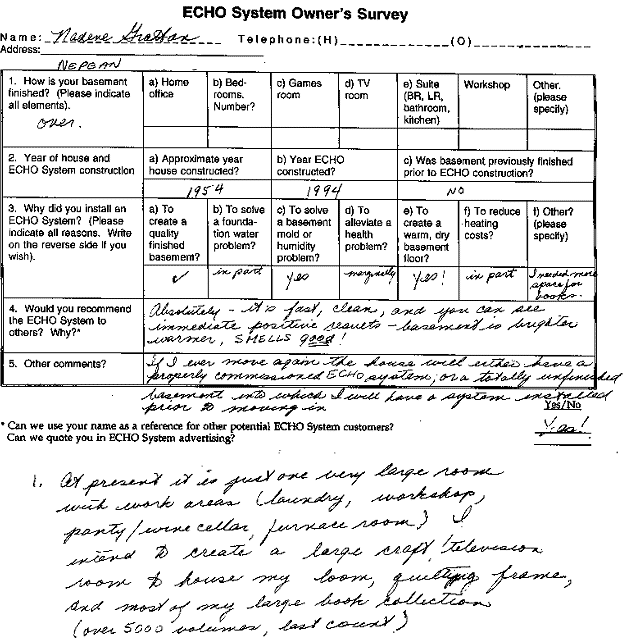 ECHO System Owner's Survey
Name: Nadene Grattan Telephone: (H) (O)
Address:
NEPEAN
1. How is your basement finished? (Please indicate all elements).
over.
a) Home office
b) Bed-rooms. Number?
c) Games room
d) TV room
e) Suite (BR, LR, bathroom, kitchen)
Workshop
Other. (please specify)
2. Year of house and ECHO System construction
a) Approximate year house constructed?
1954
b) Year ECHO constructed?
1994
c) Was basement previously finished prior to ECHO construction?
NO
3. Why did you install an ECHO System? (Please indicate all reasons. Write on the reverse side if you wish).
a) To create a quality finished basement?
✓
b) To solve a founda-tion water problem?
in part
c) To solve a basement mold or humidity problem?
yes
d) To alleviate a health problem?
marginally
e) To create a warm, dry basement floor?
Yes!
f) To reduce heating costs?
in part
f) Other? (please specify)
I needed more space for books.
4. Would you recommend the ECHO System to others? Why?*
Absolutely - it's fast, clean, and you can see
immediate positive results - basement is brighter
warmer, SMELLS good!
5. Other comments?
If I ever move again the house will either have a
properly commissioned ECHO system, or a totally unfinished
basement into which I will have a system installed
prior to moving in
Yes/No
* Can we use your name as a reference for other potential ECHO System customers?
Can we quote you in ECHO System advertising?
Yes!
1. At present it is just one very large room
with work areas (laundry, workshop,
panty/wine cellar, furnace room) I
intend to create a large craft/television
room to house my loom, quilting frame,
and most of my large book collection
(over 5000 volumes, last count)